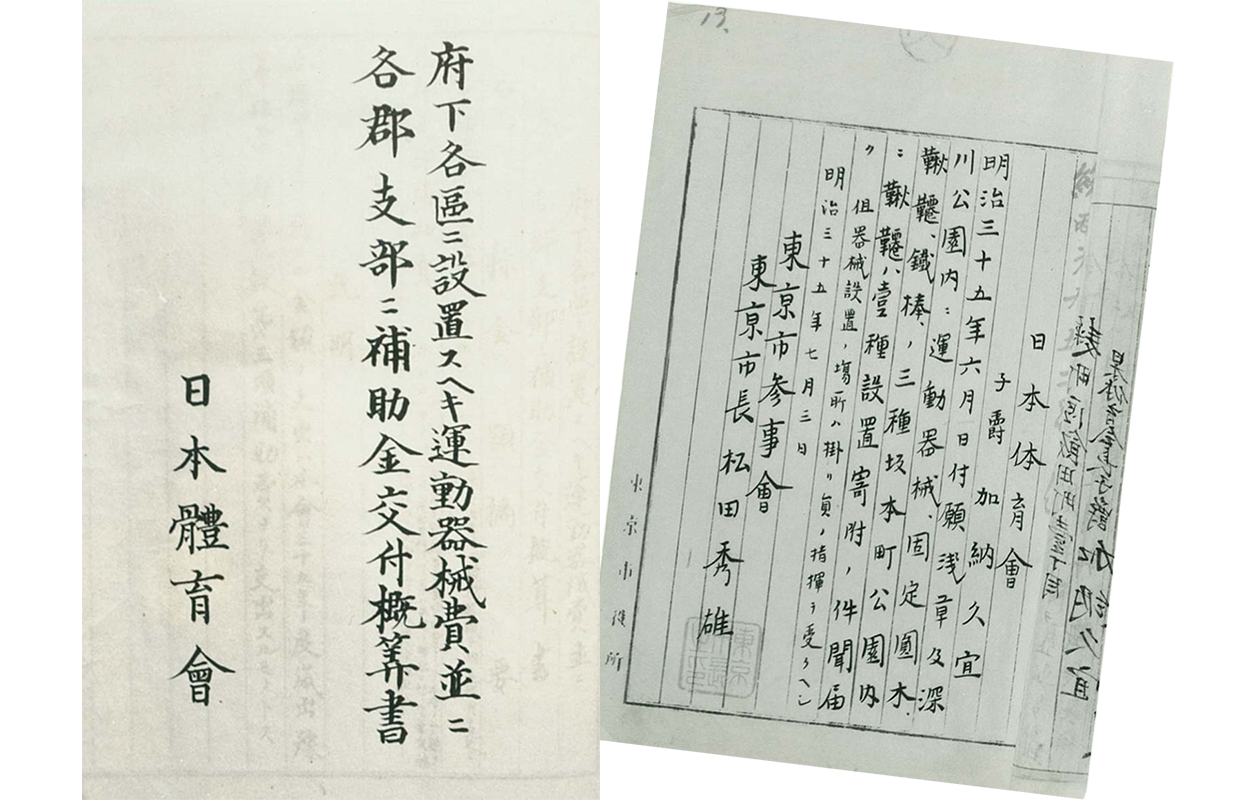 府下各區ニ設置スヘキ運動器械費並ニ
各郡支部ニ補助金交付概算書
日本體育會
13.
日本体育會
子爵 加納久宜
明治三十五年六月日付願浅草及深
川公園内ニ運動器械、固定圓木、
鞦韆、鐵棒、三種坂本町公園内
ニ鞦韆ハ壹種設置寄附ノ件聞届
ク但器械設置ノ塲所ハ掛リ員ノ指揮ヲ受クヘシ
明治三十五年七月三日
東京市参事會
東京市長松田秀雄
東京市役所